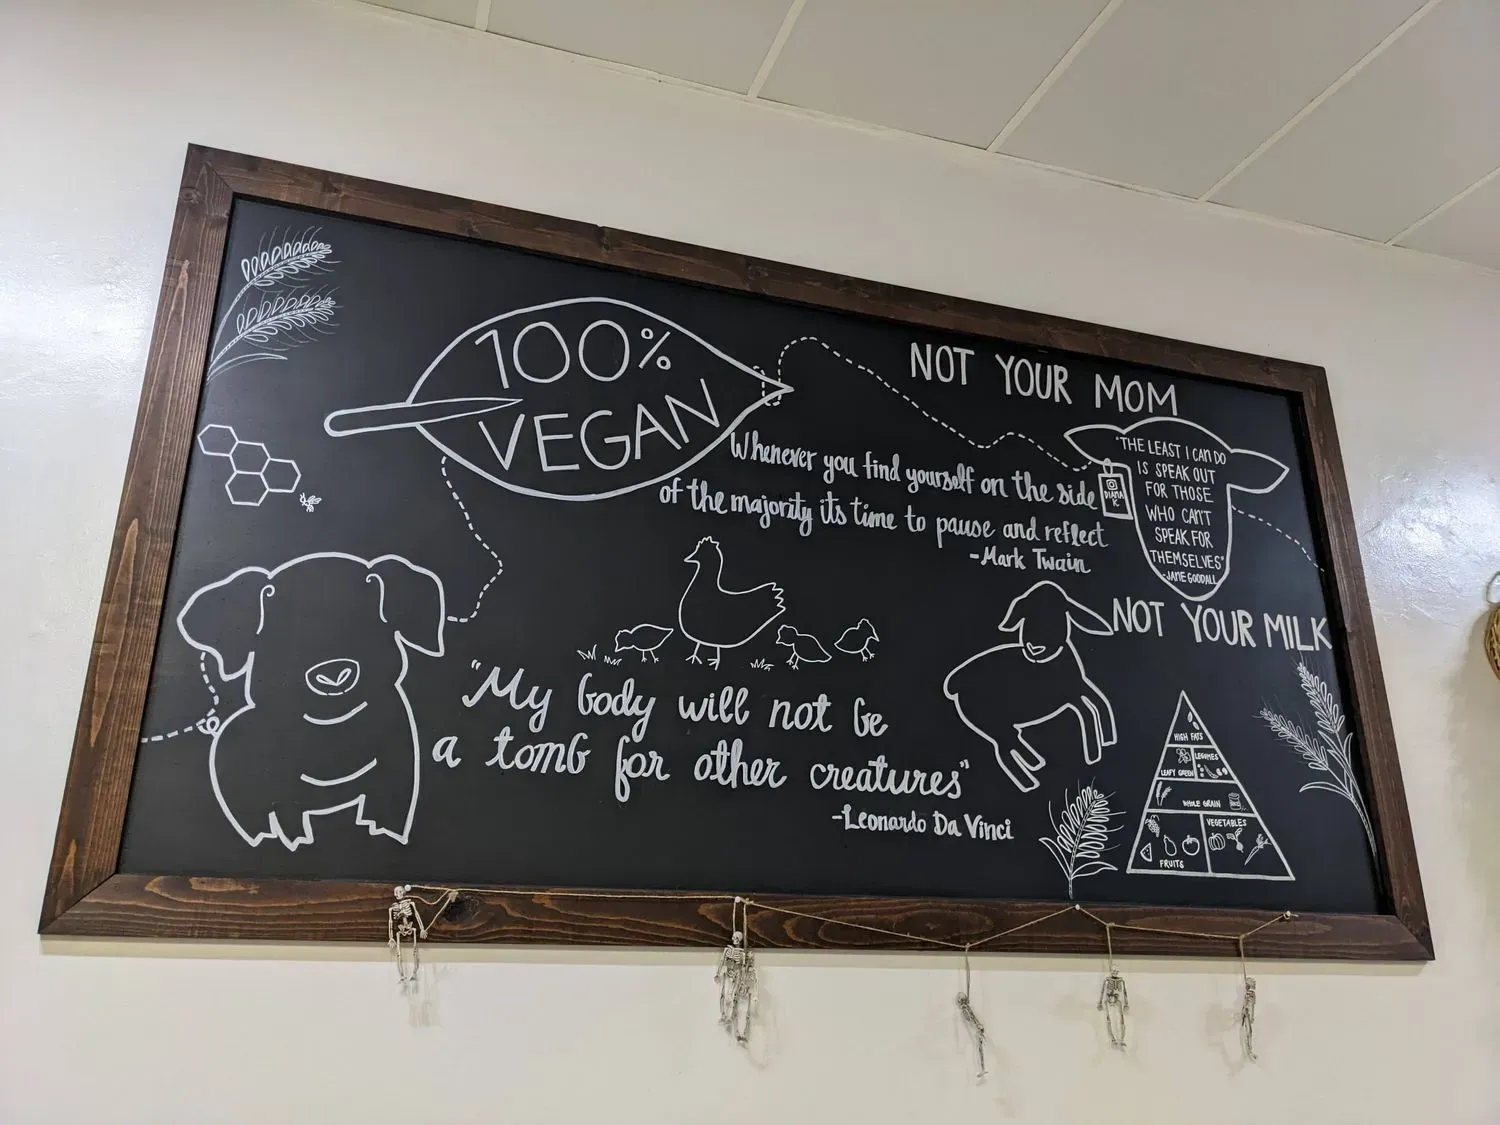 100%
VEGAN
NOT YOUR MOM
"THE LEAST I CAN DO
IS SPEAK OUT
FOR THOSE
WHO CAN'T
SPEAK FOR
THEMSELVES"
-JANE GOODALL
DIANA
Whenever you find yourself on the side
of the majority its time to pause and reflect
-Mark Twain
NOT YOUR MILK
"My body will not be
a tomb for other creatures"
-Leonardo Da Vinci
HIGH FATS
LEAFY GREEN
LEGUMES
WHOLE GRAIN
FRUITS
VEGETABLES